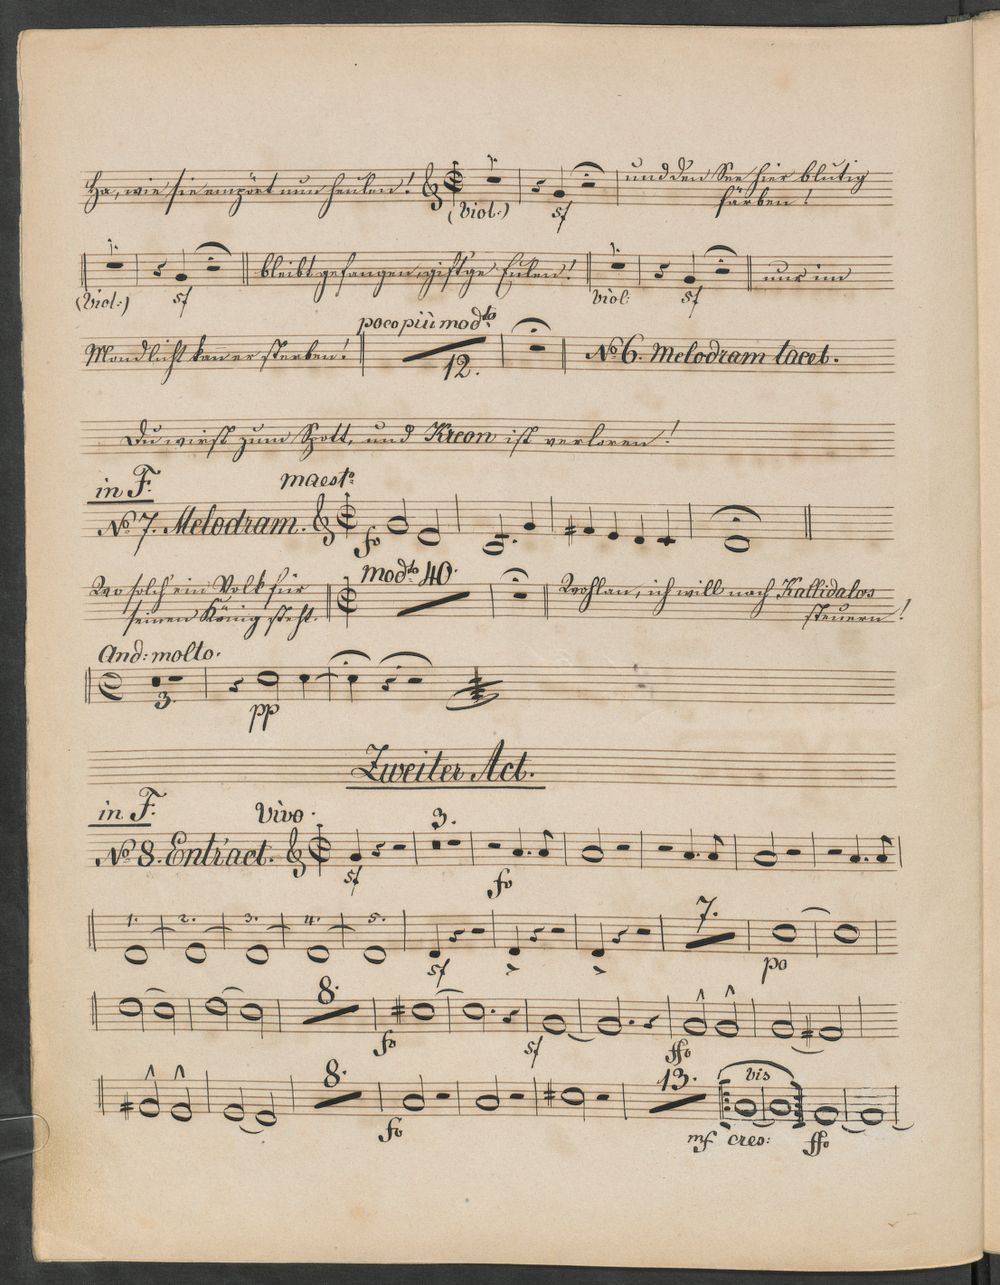 Ha, wie sie empört nun heulen! (Viol:) sf und den See hier blutig
färben!
(Viol:) sf bleibt gefangen, gift'ge Eulen! Viol: sf nur im
poco più modto
Mondlicht kann er sterben! 12. No 6. Melodram tacet.
Du wirst zum Spott, und Kreon ist verloren!
in F. maesto
No 7. Melodram. fo
Wo solch' ein Volk für modto 40. Wohlan, ich will nach Kallidalos
seinen König steht. steuern!
And: molto.
3. pp
Zweiter Act.
in F. Vivo. 3.
No 8. Entr'act. sf fo
1. 2. 3. 4. 5. sf 7. po
8. fo sf ffo
8. fo 13. mf cres: bis ffo